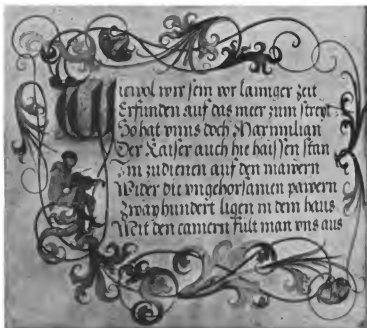 Wiewol wir sein vor lannger zeit
Erfunden auf das meer zum streyt
So hat vnns doch Maximilian
Der Kaiser auch hie haissen stan
Im zu dienen auf den mawern
Wider die vngehorsamen pawern
Zway hundert ligen in dem haus
Mit den camern fült man vns aus